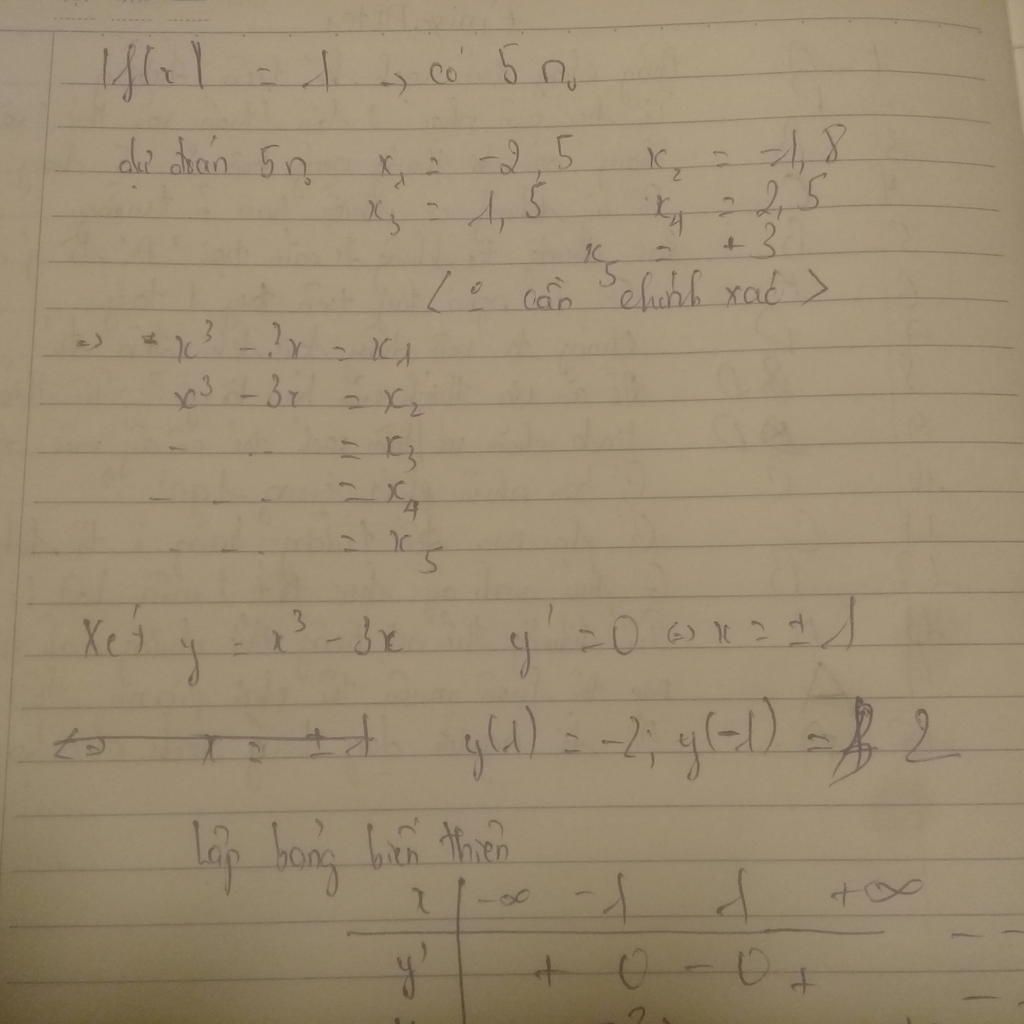 |f(x)| = 1 → có 5 n₀
dự đoán 5 n₀ x₁ = -2,5 x₂ = -1,8
x₃ = 1,5 x₄ = 2,5
x₅ = +3
< 0 cần chính xác >
=> x³ - 3x = x₁
x³ - 3x = x₂
- - - = x₃
- - - = x₄
- - - = x₅
Xét y = x³ - 3x y' = 0 <=> x = ±1
<=> x = ±1 y(1) = -2; y(-1) = 2
Lập bảng biến thiên
x | -∞ -1 1 +∞
y' | + 0 - 0 +